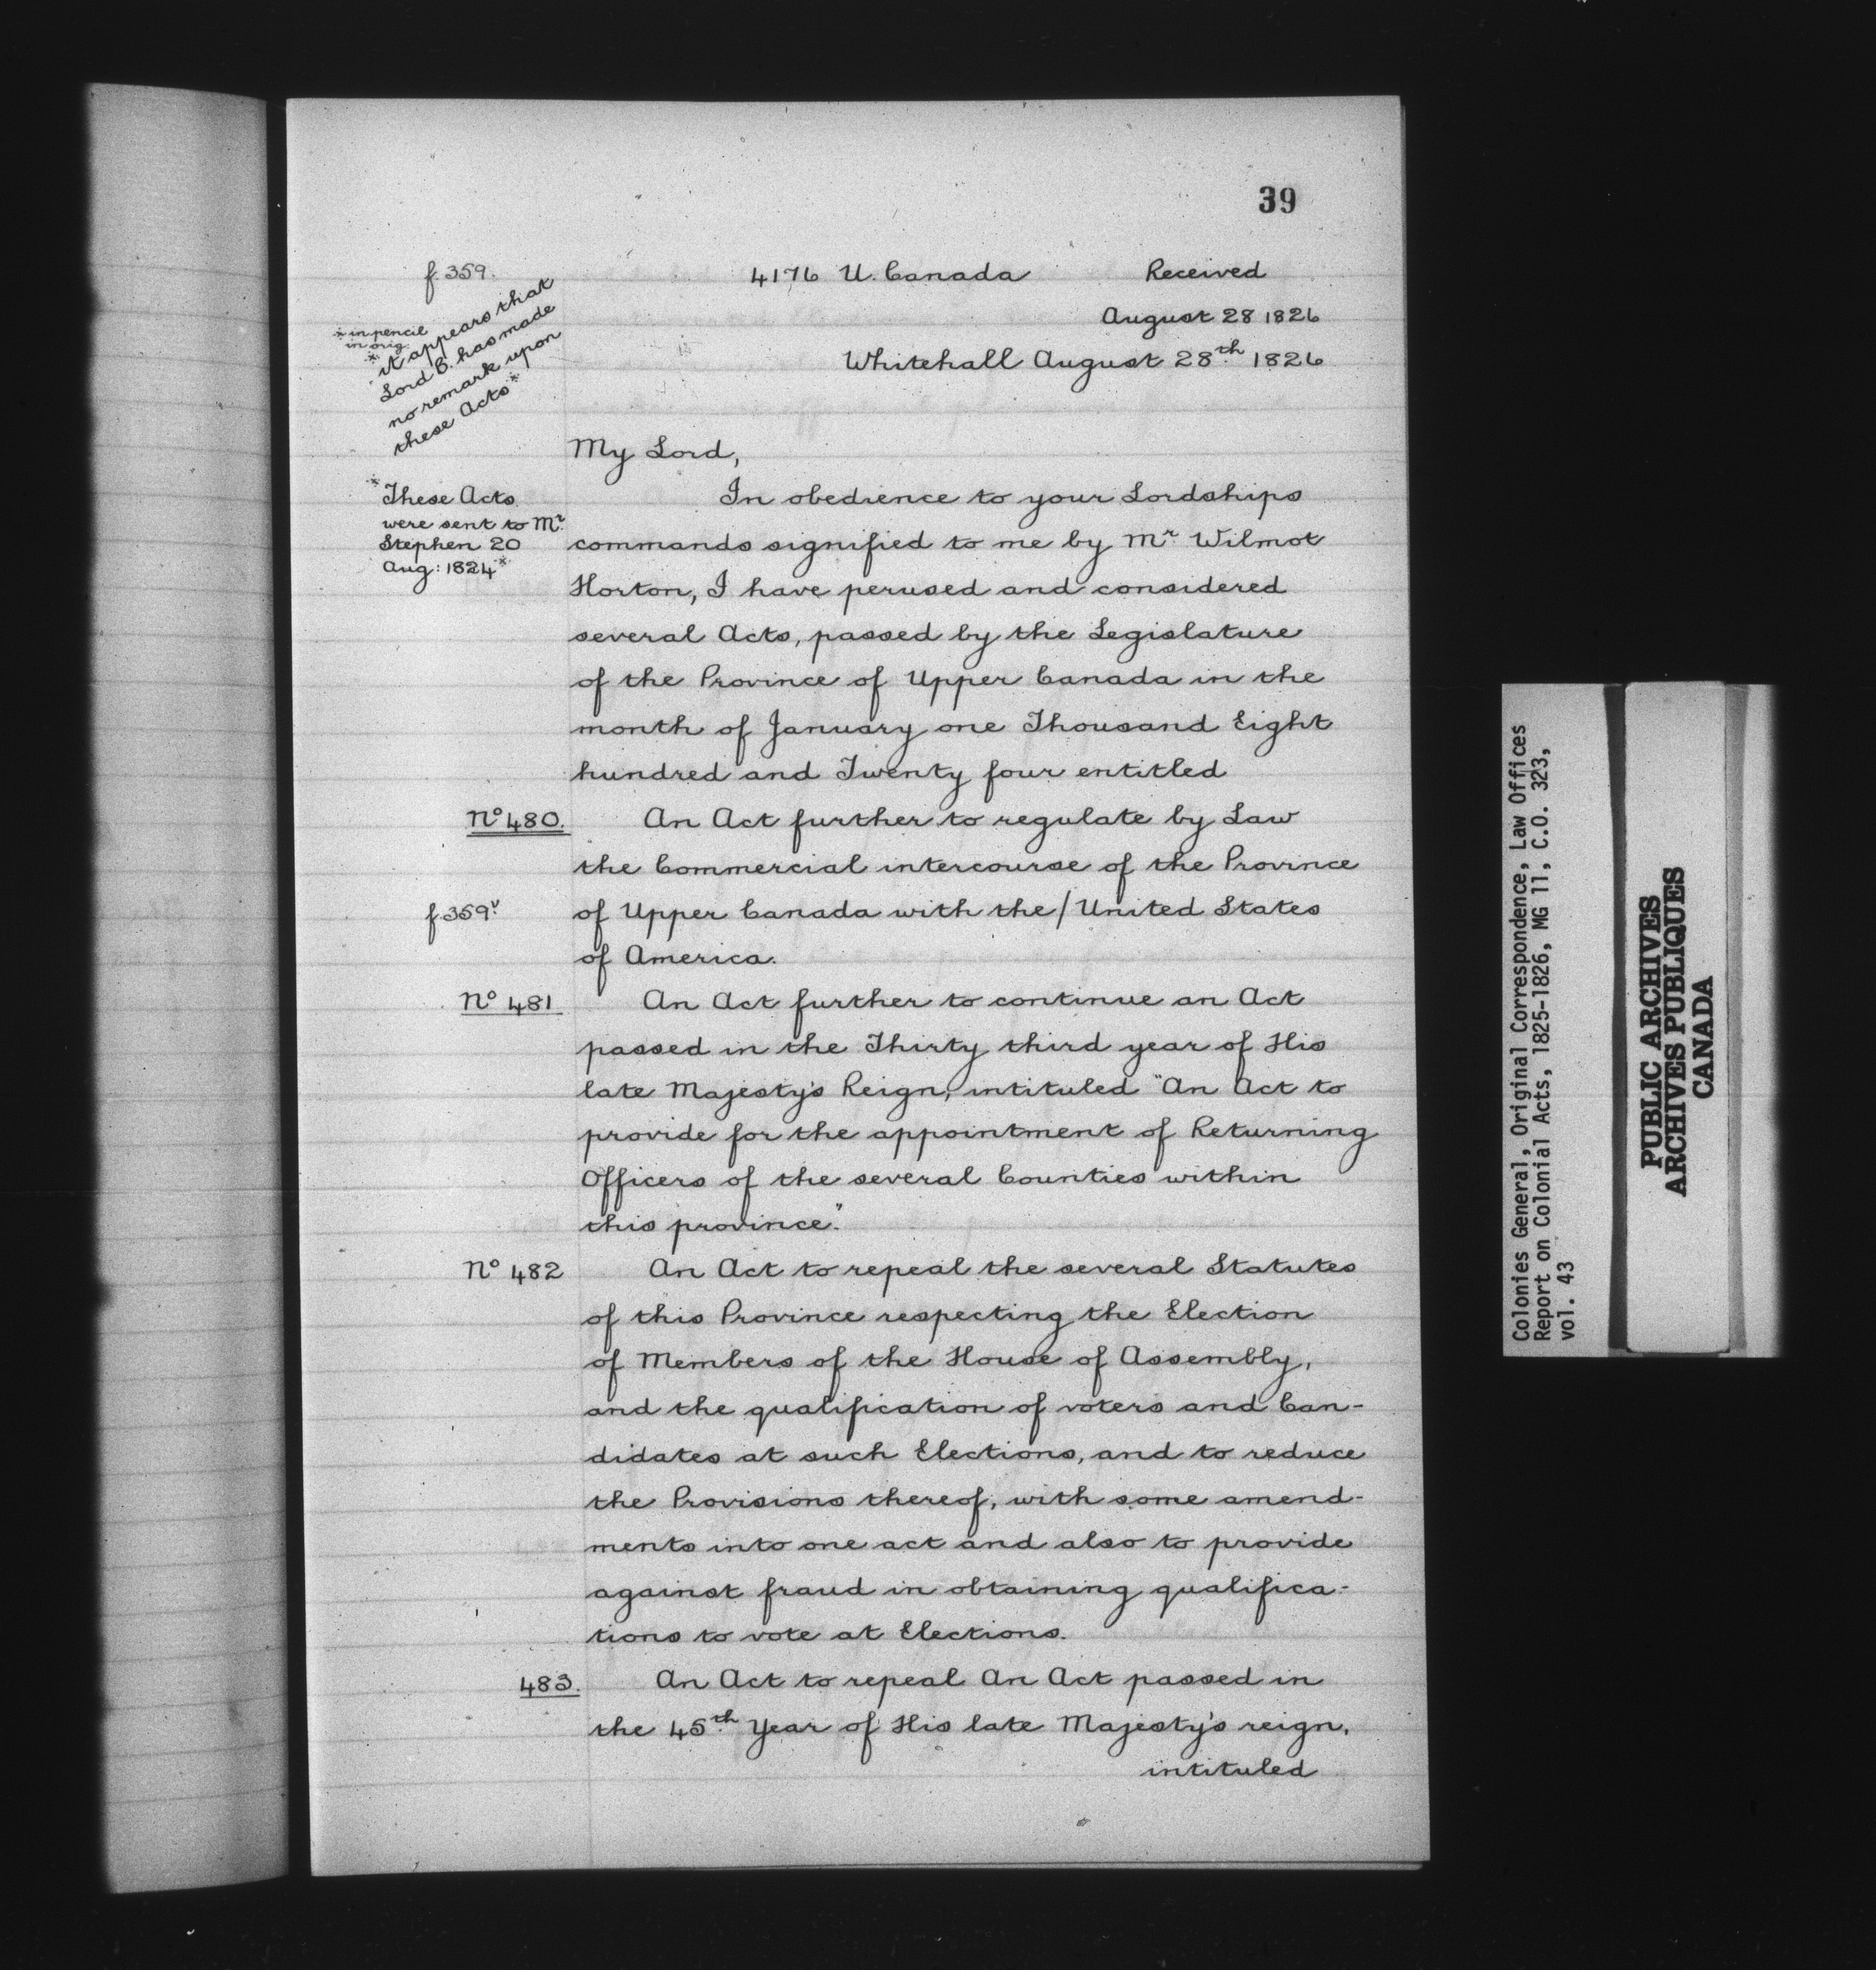 39
f. 359.
4176 U. Canada Received
August 28 1826
Whitehall August 28th 1826
* in pencil
in orig.
* it appears that
Lord B. has made
no remark upon
these Acts *
My Lord,
* These Acts
were sent to Mr.
Stephen 20
Aug: 1824 *
In obedience to your Lordships
commands signified to me by Mr Wilmot
Horton, I have perused and considered
several Acts, passed by the Legislature
of the Province of Upper Canada in the
month of January one Thousand Eight
hundred and Twenty four entitled
No 480. An Act further to regulate by Law
the Commercial intercourse of the Province
f. 359v of Upper Canada with the / United States
of America.
No 481 An Act further to continue an Act
passed in the Thirty third year of His
late Majesty's Reign, intituled "An Act to
provide for the appointment of Returning
Officers of the several Counties within
this province."
No 482 An Act to repeal the several Statutes
of this Province respecting the Election
of Members of the House of Assembly,
and the qualification of voters and Can-
didates at such Elections, and to reduce
the Provisions thereof, with some amend-
ments into one act and also to provide
against fraud in obtaining qualifica-
tions to vote at Elections.
483. An Act to repeal An Act passed in
the 45th Year of His late Majesty's reign,
intituled
Colonies General, Original Correspondence, Law Offices
Report on Colonial Acts, 1825-1826, MG 11, C.O. 323,
vol. 43
PUBLIC ARCHIVES
ARCHIVES PUBLIQUES
CANADA